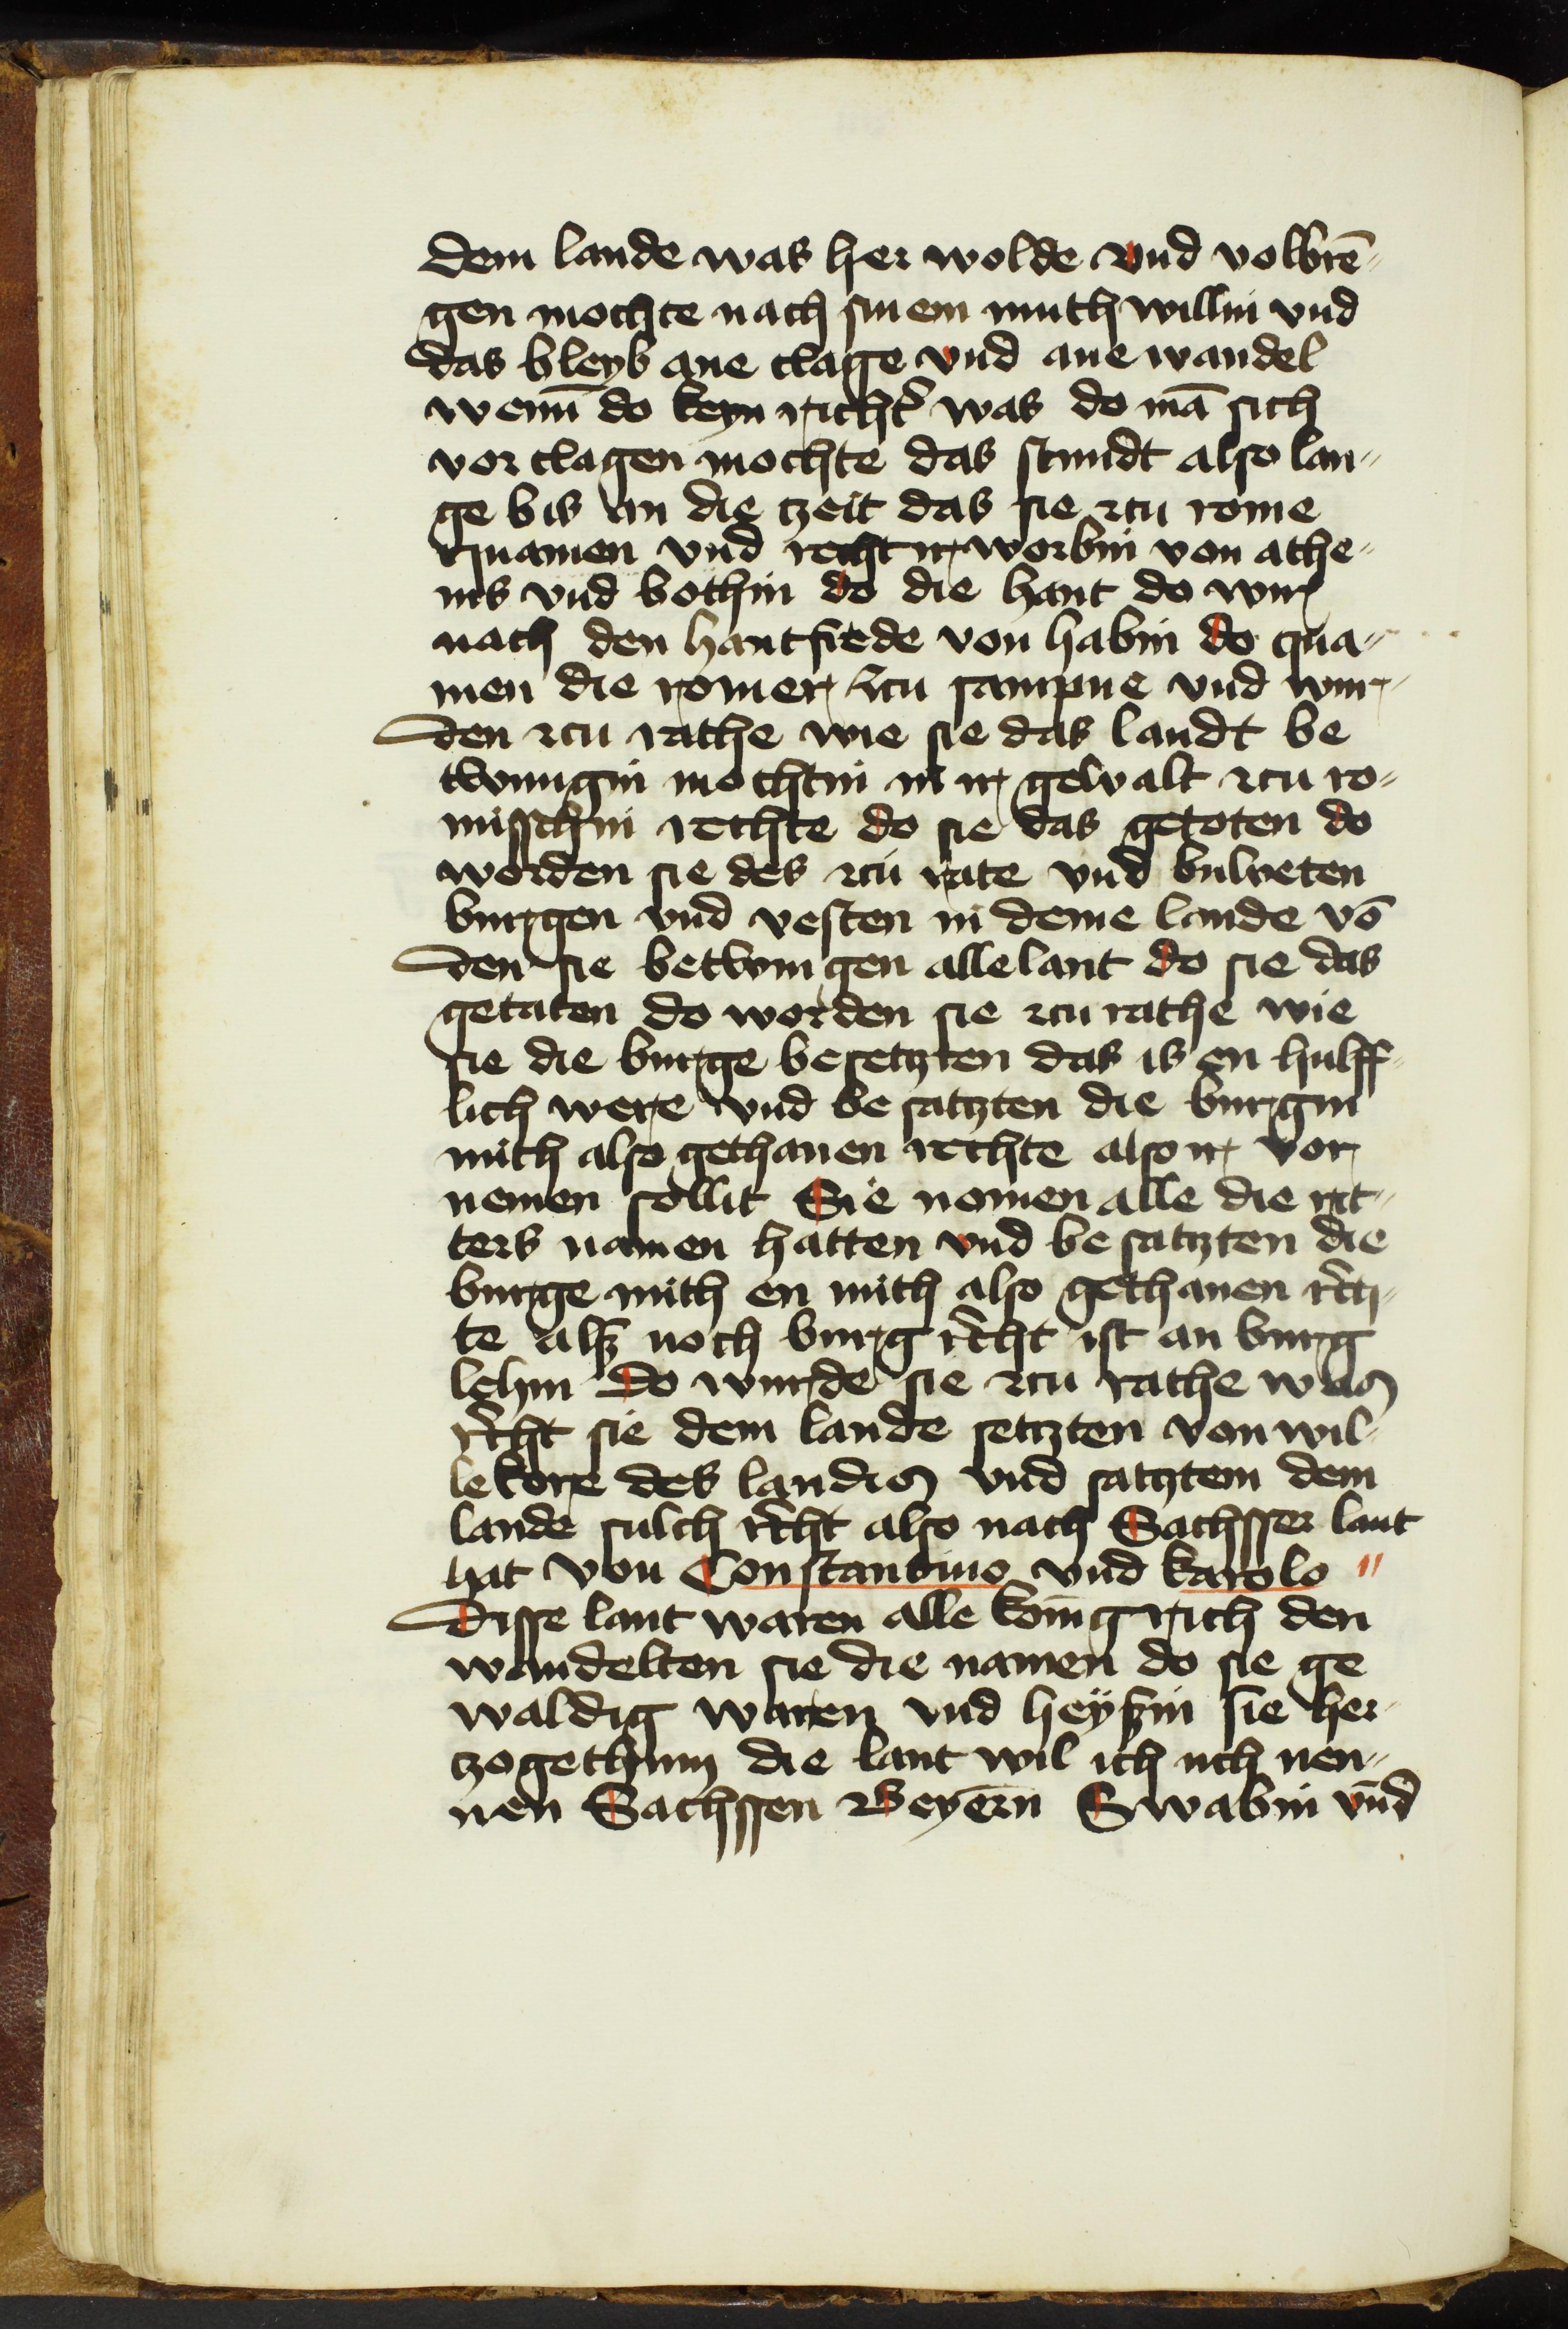 dem lande was her wolde vnd volbrē-
gen mochte nach sinem muth willin vnd
das bleyb ane clage vnd ane wandel
wenn̄ do keyn richt̉ was do mā sich
vor clagen mochte das stundt also lan-
ge bis an die tzeit das sie zcu rome
quamen vnd recht ir worbin von athe-
nis vnd bothin do die hant do wir
nach den hantfrede von habin do qua-
men die romer zcu sampne vnd wur-
den zcu rathe wie sie das landt be
twungin mochtin in ir gewalt zcu ro-
misschin rechte do sie das getoten do
worden sie des zcu rate vnd buweten
burgen vnd vesten in deme lande vō
den sie betwungen alle lant do sie das
getaten do worden sie zcu rathe wie
sie die burge besetzten das is en hulff-
lich were vnd be satzten die burgin
mith also gethanen rechte also ir vor
nemen sollit Sie nomen alle die rit-
ters namen hatten vnd be satzten die
burge mith en mith also gethanen rech-
te alß noch burg recht ist an burg
lehin Do wurde sie zcu rathe was
recht sie dem lande setzten von wil-
lekore des landis vnd satztem dem
lande sulch recht also nach Sachsser lant
hat von Constantino vnd karolo "
Disse lant waren alle konigrich den
wandelten sie die namen do sie ge
waldig waren vnd heyßin sie her-
zogethum die lant wil ich uch nen-
nen Sachssen Beyern Swabin vnd